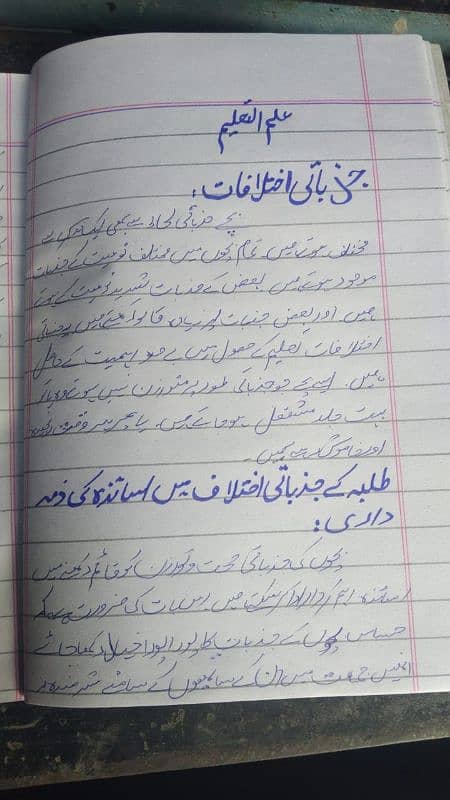 علم التعلیم
جذباتی اختلافات:
بچے جذباتی لحاظ سے بھی ایک دوسرے سے
مختلف ہوتے ہیں۔ تمام بچوں میں مختلف نوعیت کے جذبات
موجود ہوتے ہیں بعض کے جذبات شدید نوعیت کے ہوتے
ہیں اور بعض جذبات پر زیادہ قابو رکھتے ہیں۔ جذباتی
اختلافات تعلیم کے حصول میں بے حد اہمیت کے حامل
ہیں۔ ایسے بچے جو جذباتی طور پر متوازن نہیں ہوتے وہ یا تو
بہت جلد مشتعل ہو جاتے ہیں۔ یا پھر ہر وقت
اور خاموش رہتے ہیں۔
طلبہ کے جذباتی اختلاف میں اساتذہ کی ذمہ
داری:
بچوں کی جذباتی صحت و توازن کو قائم رکھنے میں
اساتذہ اہم کردار ادا کر سکتے ہیں اس بات کی ضرورت ہے کہ
حساس بچوں کے جذبات کا پورا پورا خیال رکھا جائے
انہیں جماعت میں ان کے ساتھیوں کے سامنے شرمندہ نہ